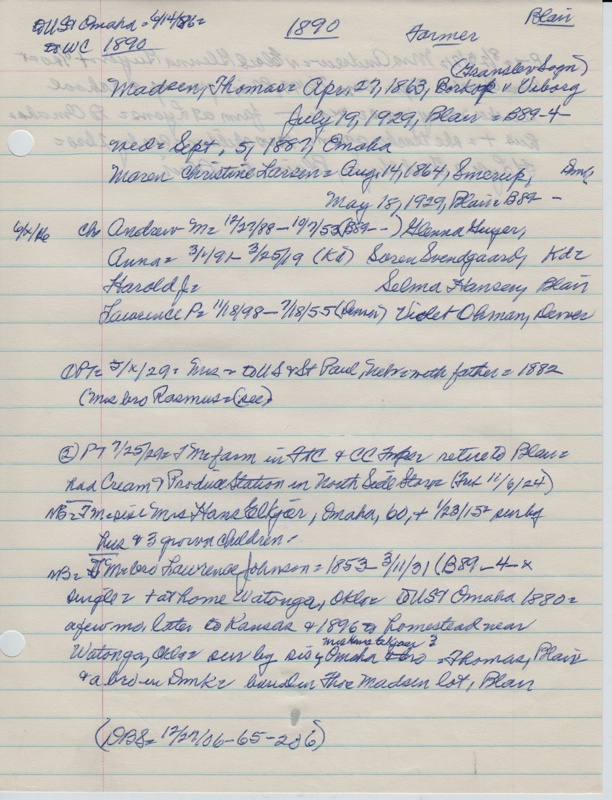 to US & Omaha = 4/14/86 = 1890 Farmer Blair
to WC 1890
(Granslev Sogn)
Madsen, Thomas = Apr, 27, 1863, Borkop v Viborg
July 19, 1929, Blair = B89-4-
wed = Sept, 5, 1887, Omaha
Maren Christine Larsen = Aug 14, 1864, Smerup, Dmk
May 18, 1929, Blair = B89-
Ch Andrew M = 12/27/88 - 10/7/53 (B89--) Glenna Guyer,
Anna = 3/2/91 - 3/25/19 (Kd) Soren Svendgaard, Kd =
Harold J = Selma Hansen, Blair
Lawrence P = 11/18/98 - 7/18/55 (Denver) Violet Ohman, Denver
① PT = 5/x/29 = Mrs = to US & St Paul, Nebr = with father = 1882
(Mrs bro Rasmus = (see)
② PT 7/25/29 = T M = farm in & CC retire to Blair =
had Cream & Produce Station in North Side Store (Ent 11/6/24)
NB = T M = sis = Mrs Hans Elkjer, Omaha, 60, + 1/23/15 = sur by
hus & 3 grown children =
NB = T M = bro Lawrence Johnson = 1853 - 3/11/31 (B89-4-x
single = + at home Watonga, Okla = to US & Omaha 1880 =
a few mo, later to Kansas & 1896 = to homestead near
Mrs Hans Elkjaer ?
Watonga, Okla = sur by sis, Omaha & bro = Thomas, Blair
& a bro in Dmk = buried in Thos Madsen lot, Blair
(DBS = 12/27/06-65-206)